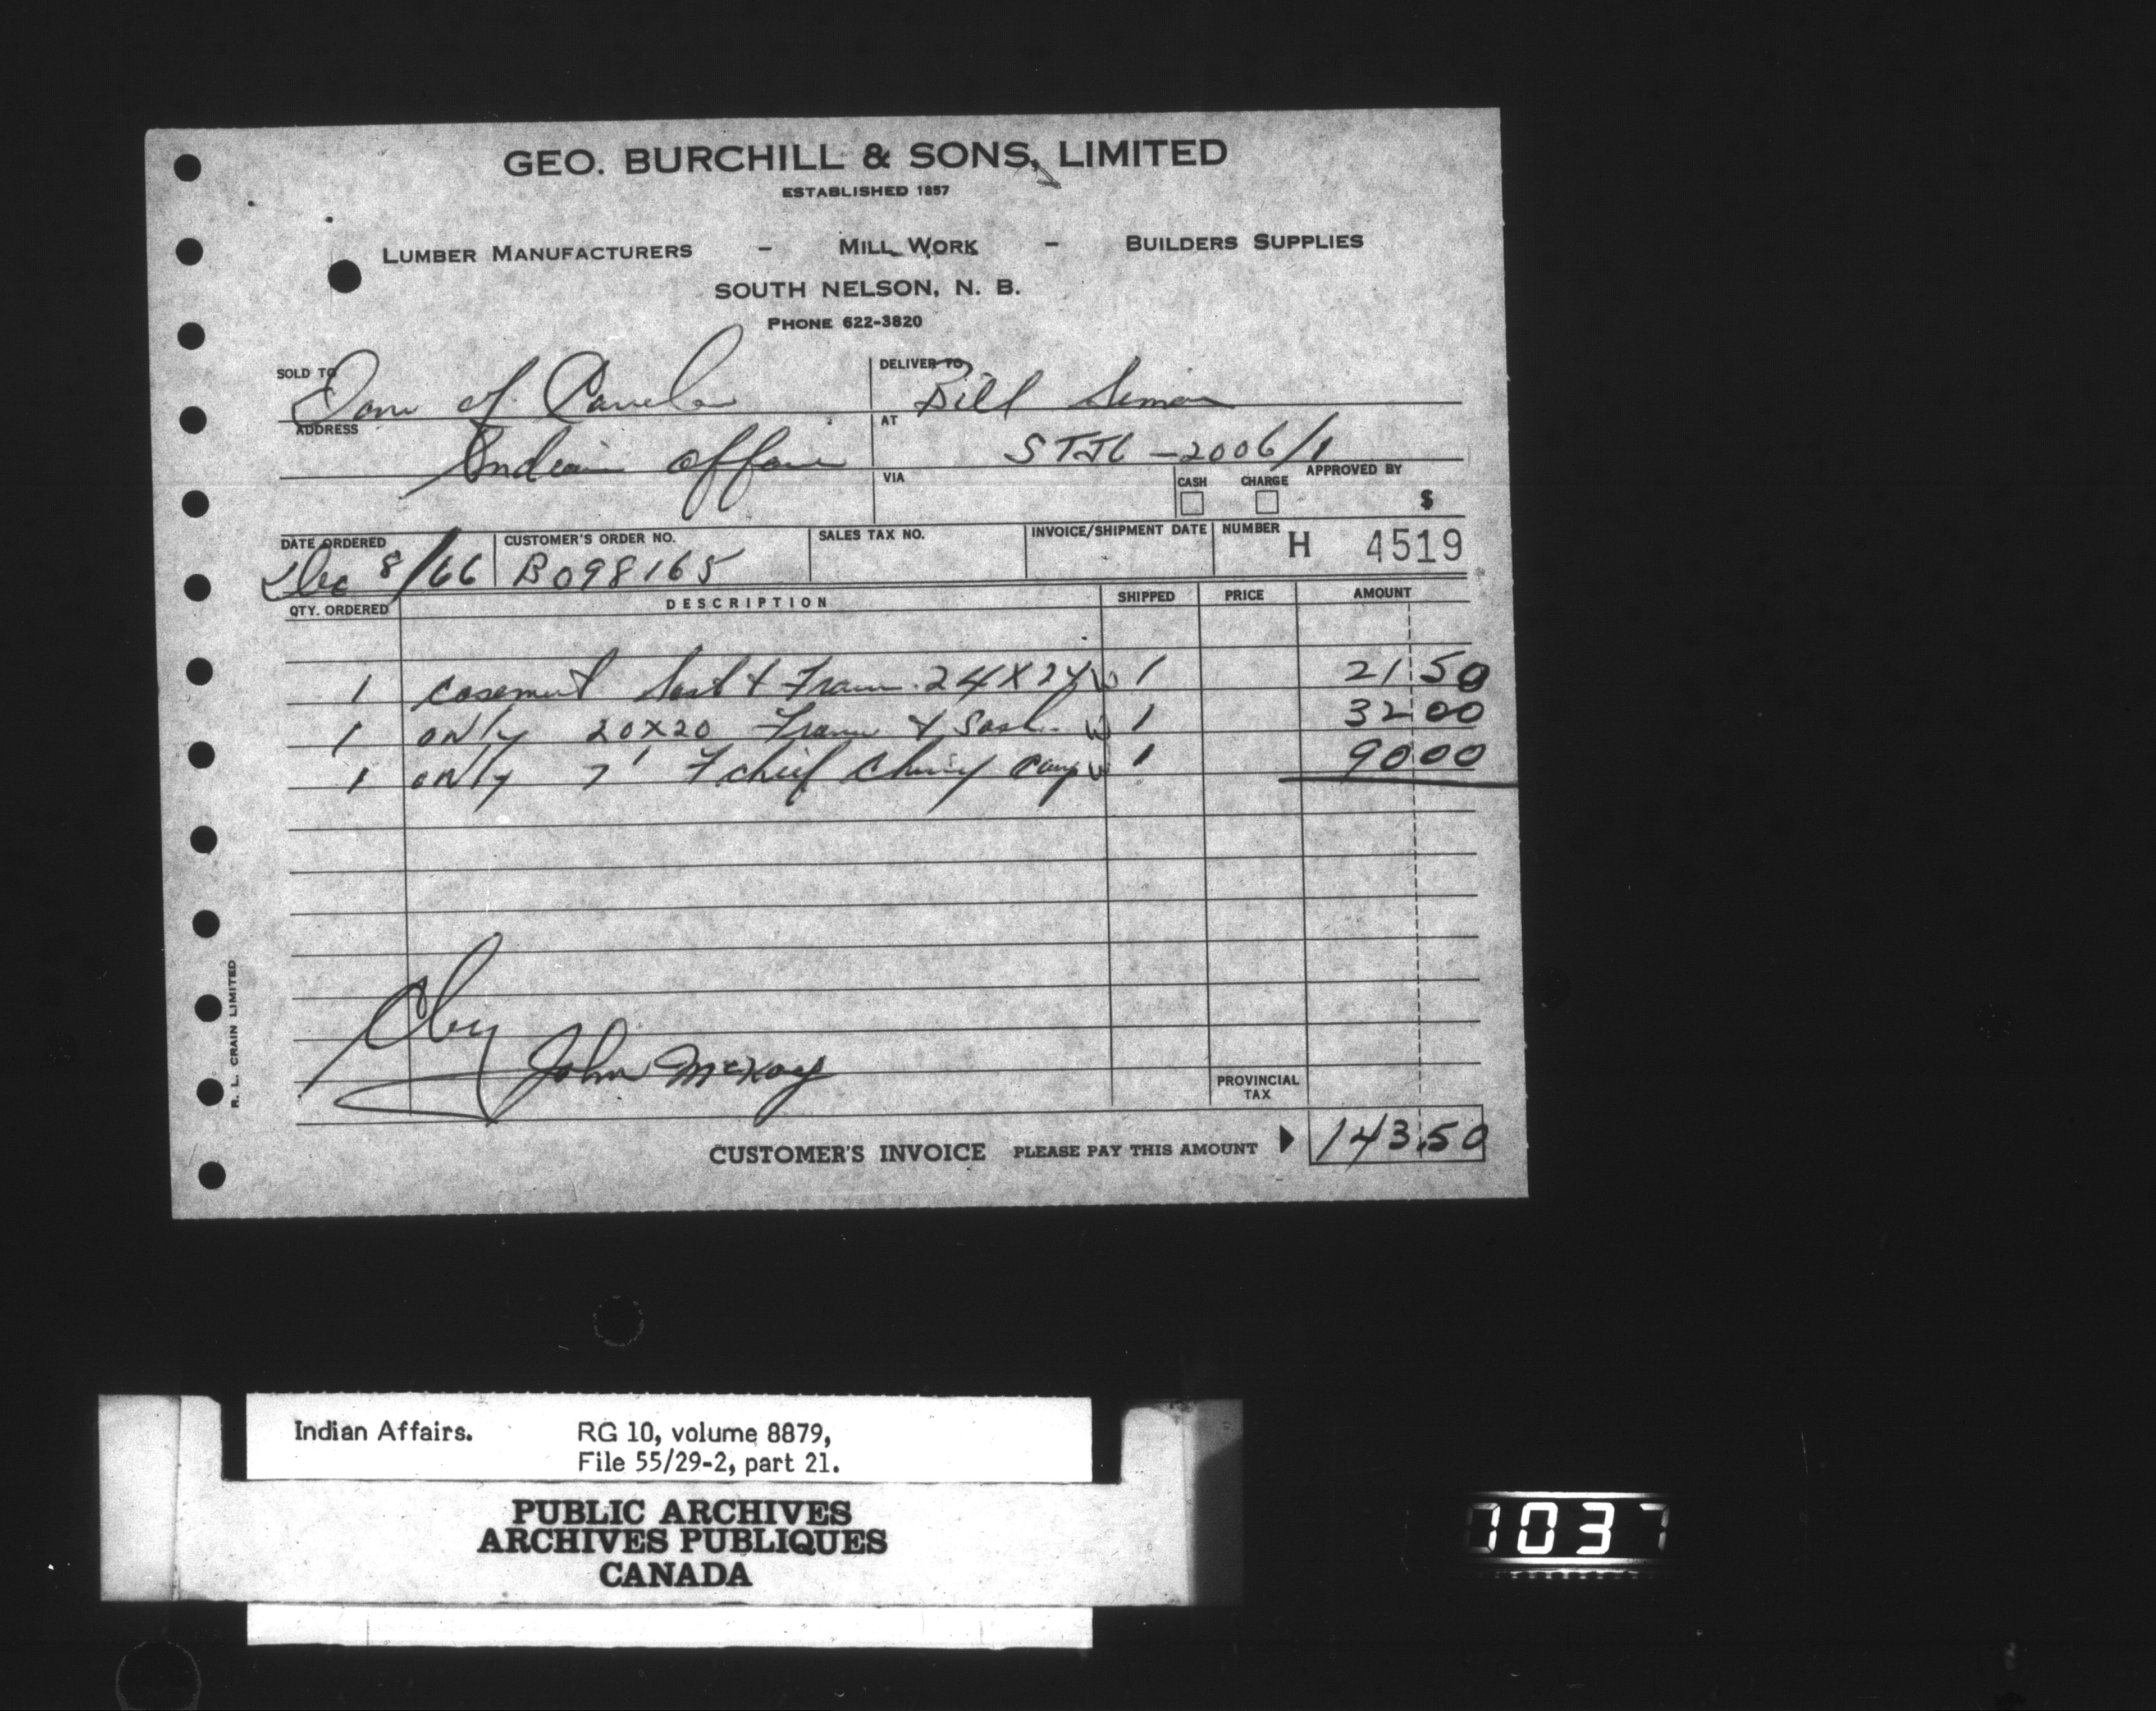 GEO. BURCHILL & SONS, LIMITED
ESTABLISHED 1857
LUMBER MANUFACTURERS - MILL WORK - BUILDERS SUPPLIES
SOUTH NELSON, N. B.
PHONE 622-3820
SOLD TO Dom of Canada
DELIVER TO Bill Simon
ADDRESS Indian Affairs
AT STJL-2006/1
VIA
CASH CHARGE APPROVED BY
$
DATE ORDERED Dec 8/66
CUSTOMER'S ORDER NO. B098165
SALES TAX NO.
INVOICE/SHIPMENT DATE
NUMBER H 4519
QTY. ORDERED DESCRIPTION SHIPPED PRICE AMOUNT
1 casement Sash & Frame 24X24 1 21 50
1 only 20X20 Frame & Sash 1 32 00
1 only 7' 1 90 00
John McKay
R. L. CRAIN LIMITED
PROVINCIAL TAX
CUSTOMER'S INVOICE PLEASE PAY THIS AMOUNT 143.50
Indian Affairs. RG 10, volume 8879,
File 55/29-2, part 21.
PUBLIC ARCHIVES
ARCHIVES PUBLIQUES
CANADA
1037